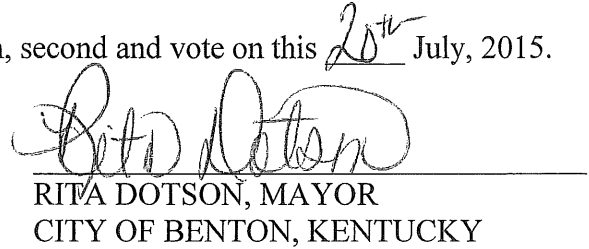 , second and vote on this 20th July, 2015.
Rita Dotson
RITA DOTSON, MAYOR
CITY OF BENTON, KENTUCKY